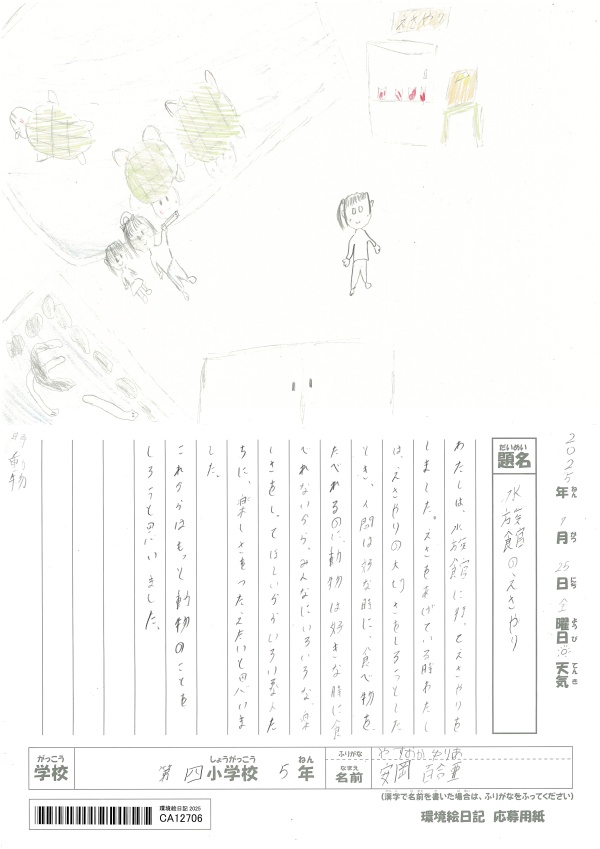 えさやり
2025年 7月 25日 金曜日 天気
ねん がつ にち ようび てんき
だいめい
題名
水族館のえさやり
わたしは、水族館に行,てえさやりを
しました。えさをあげている時わたし
は、えさやりの大切さをしろうとした
とき、人間は好な時に、食べ物を
たべれるのに、動物は好きな時に食
べれないから、みんなにいろいろな、楽
しさをし、てほしいからいろい
ちに、楽しさをつたえたいと思いま
した。
これからはもっと動物のことを
しろうと思いました。
#動物
がっこう
学校
第四小学校 5年
しょうがっこう ねん
ふりがな
なまえ
名前
安岡 百合亜
(漢字で名前を書いた場合は、ふりがなをふってください)
環境絵日記 2025
CA12706
環境絵日記 応募用紙